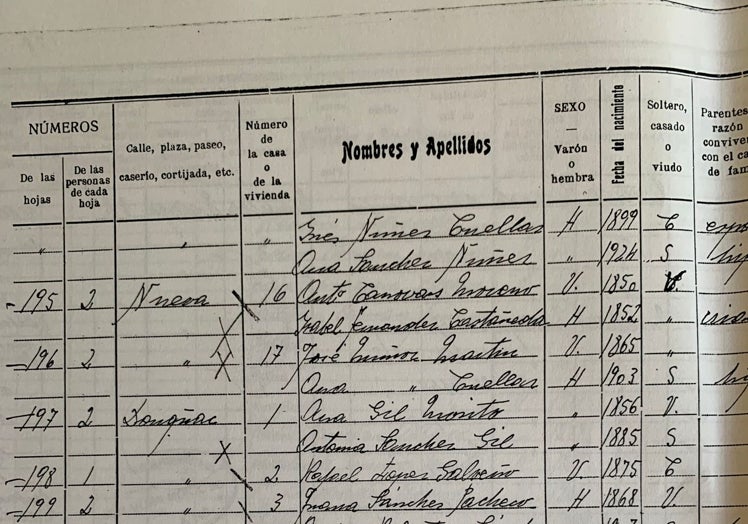 NÚMEROS
De las hojas
De las personas de cada hoja
Calle, plaza, paseo, caserío, cortijada, etc.
Número de la casa o de la vivienda
Nombres y Apellidos
SEXO — Varón o hembra
Fecha del nacimiento
Soltero, casado o viudo
Parentes razón conviven con el ca de fam
" " " Inés Núñez Cuellar H 1899 C
Ana Sanchez Núñez " 1924 S
195 2 Nueva 16 Antº Canovas Moreno V. 1850
Isabel Fernandez Castañeda H 1852 "
196 2 " 17 José Muñoz Martin V. 1865 "
Ana " Cuellar H 1903 S
197 2 1 Ana Gil " 1856 V.
" Antonia Sanchez Gil " 1885 S
198 1 " 2 Rafael Lopez V. 1875 C
199 2 " 3 Juana Sánchez Pacheco H 1868 V.